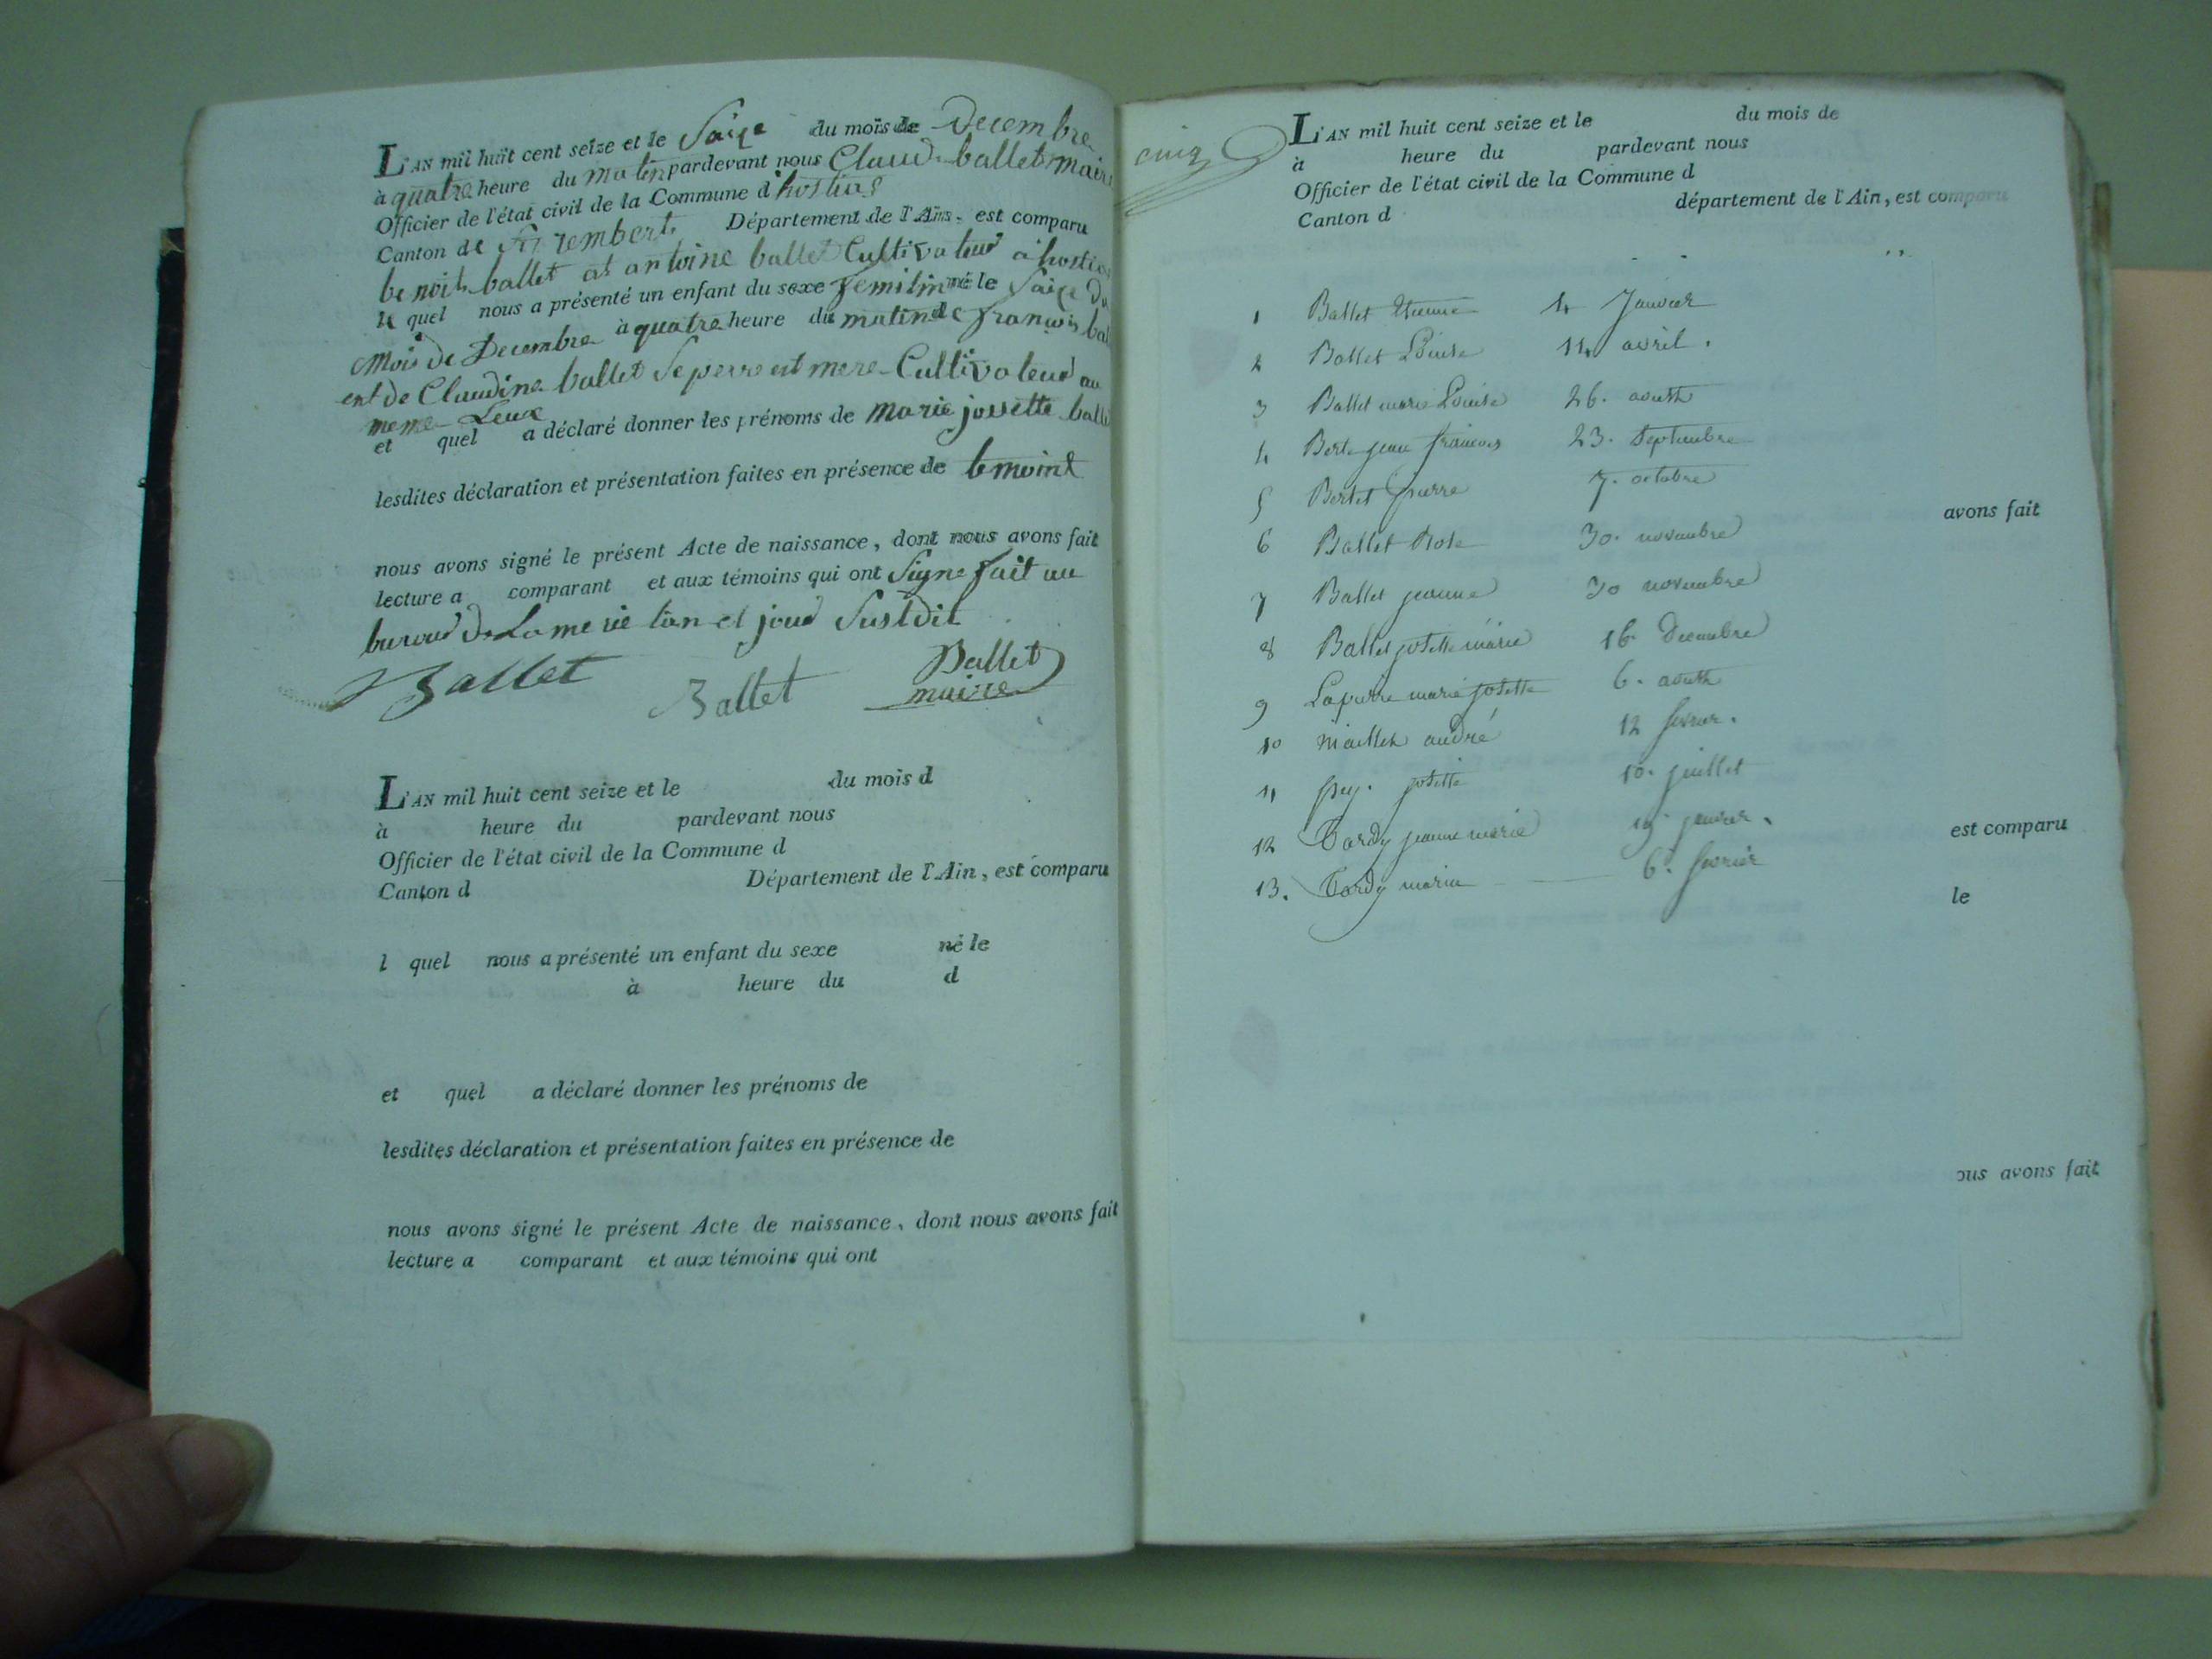 L'AN mil huit cent seize et le Saize du mois de Decembre
à quatre heure du matin pardevant nous Claude ballet maire
Officier de l'état civil de la Commune d'hostias
Canton de St rembert Département de l'Ain, est comparu
benoit ballet et antoine ballet Cultivateur a hostias
le quel nous a présenté un enfant du sexe femilin né le Saize du
Mois de Decembre à quatre heure du matin de françois bal
ent de Claudine ballet Se perre est mere Cultivateur au
meme Leux
et quel a déclaré donner les prénoms de marie jossette balle
lesdites déclaration et présentation faites en présence de temoint
nous avons signé le présent Acte de naissance, dont nous avons fait
lecture a comparant et aux témoins qui ont Signe fait au
buraud de La me rie l'an et joud Sustdit
Ballet Ballet Ballet
maire
L'AN mil huit cent seize et le du mois d
à heure du pardevant nous
Officier de l'état civil de la Commune d
Canton d Département de l'Ain, est comparu
l quel nous a présenté un enfant du sexe né le
à heure du d
et quel a déclaré donner les prénoms de
lesdites déclaration et présentation faites en présence de
nous avons signé le présent Acte de naissance, dont nous avons fait
lecture a comparant et aux témoins qui ont
cinq
L'AN mil huit cent seize et le du mois de
à heure du pardevant nous
Officier de l'état civil de la Commune d
Canton d département de l'Ain, est comparu
1 Ballet Etienne 4 Janvier
2 Ballet Louise 14 avril.
3 Ballet marie Louise 26. aoust
4 Bertet jean françois 23. Septembre
5 Bertet pierre 7. octobre
avons fait
6 Ballet Rose 30. novembre
7 Ballet jeanne 30 novembre
8 Ballet josette marie 16. Decembre
9 Lapierre marie josette 6. aoust
10 Maillet andré 12 fevrier.
11 josette 10. juillet
12 Tardy jeanne marie 19. janvier.
est comparu
13. Tardy marie 6. fevrier
le
ous avons fait